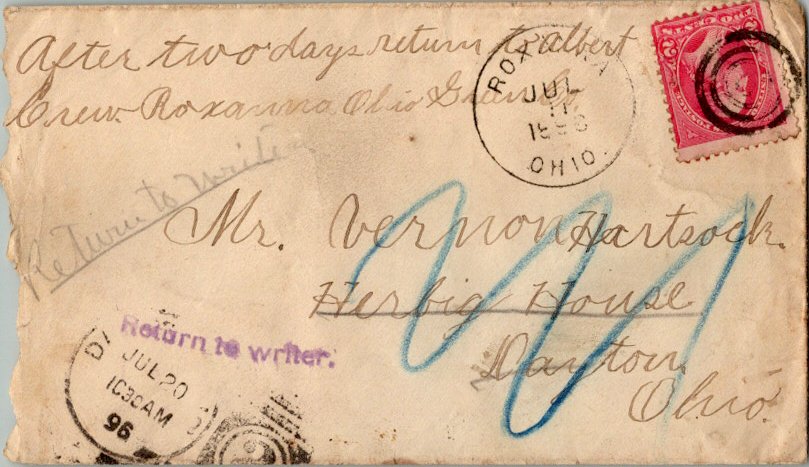 After two days return to Albert
Crew Roxanna Ohio Greene Co.
ROXANNA
JUL
11
1896
OHIO.
Return to writer
Mr. Vernon Hartsock.
Herbig House
Dayton
Ohio.
Return to writer.
JUL 20
1030AM
96